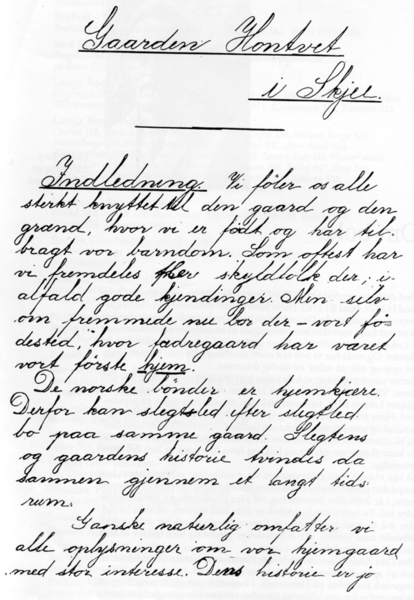 Gaarden Hontvet
i Skjee.
Indledning. Vi föler os alle
sterkt knyttet til den gaard og den
grænd, hvor vi er födt og har til-
bragt vor barndom. Som oftest har
vi fremdeles skyldfolk der, i-
alfald gode kjendinger. Men selv
om fremmede nu bor der – vort fö-
dested, hvor fædregaard har været
vort förste hjem.
De norske bönder er hjemkjære.
Derfor kan slegtsled efter slegtled
bo paa samme gaard. Slegtens
og gaardens historie tvindes da
sammen gjennem et langt tids-
rum.
Ganske naturlig omfatter vi
alle oplysninger om vor hjemgaard
med stor interesse. Dens historie er jo